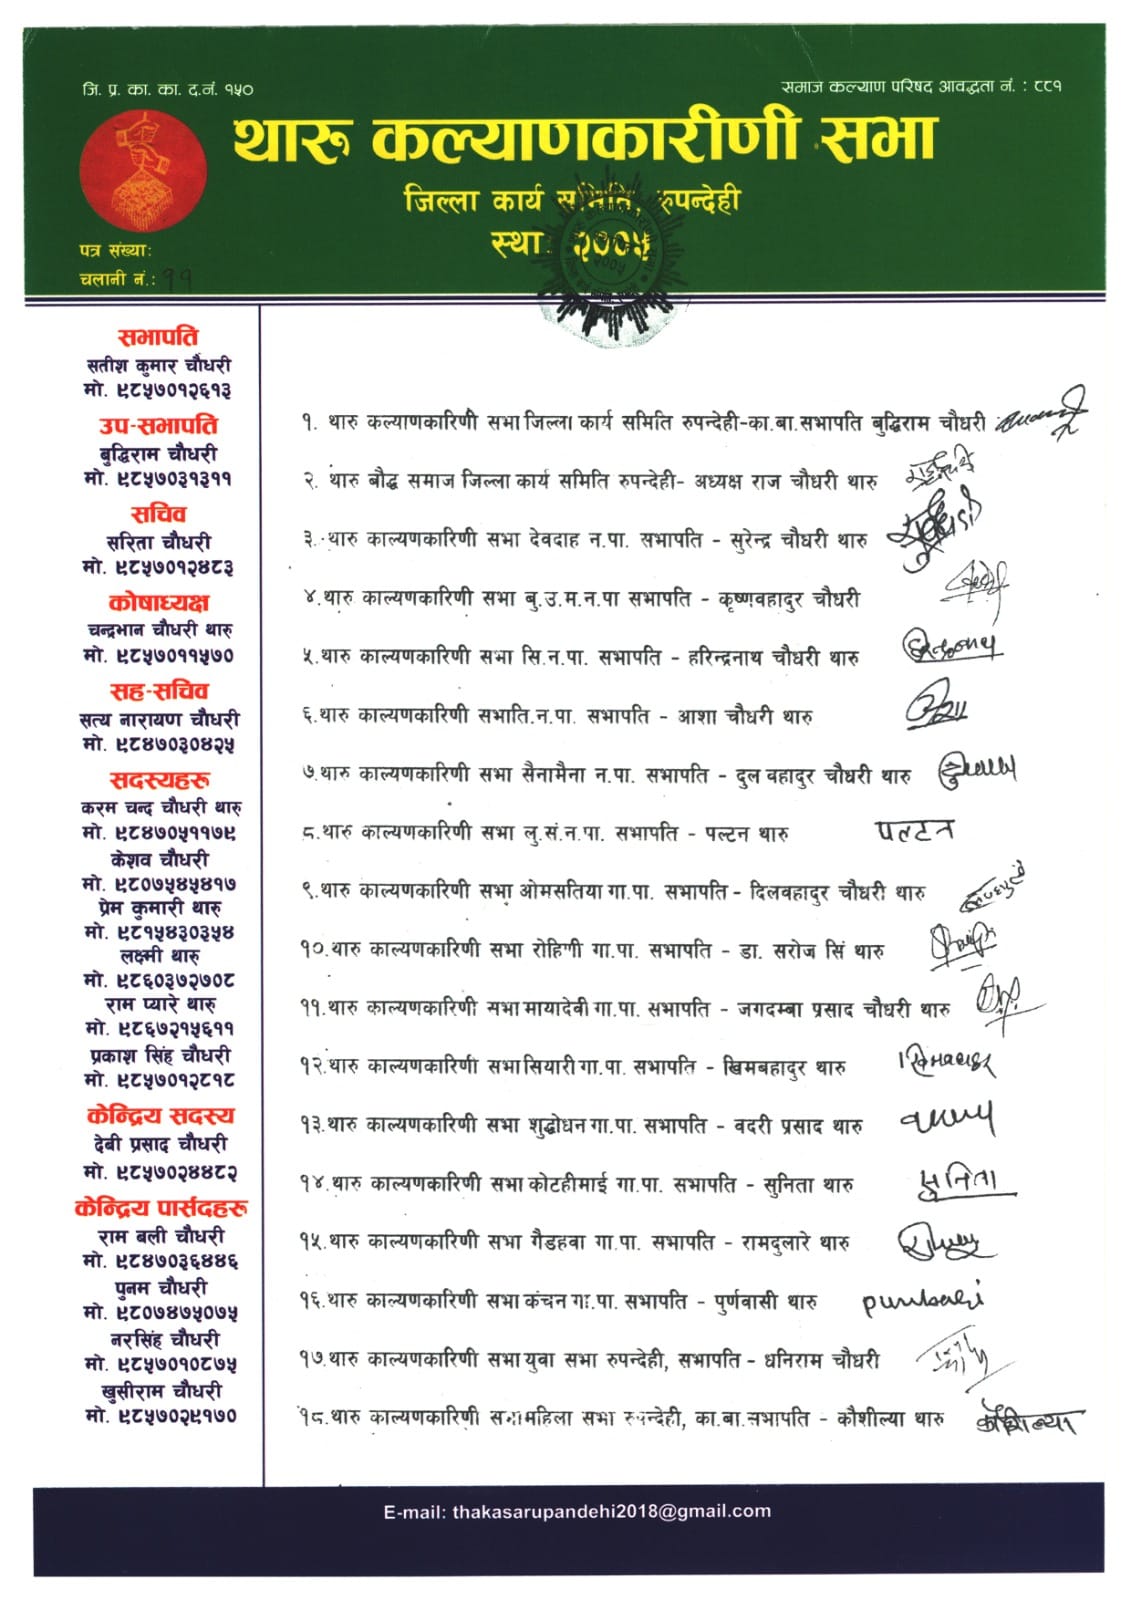 जि. प्र. का. का. द.नं. १५०
समाज कल्याण परिषद आवद्धता नं. : ८८१
थारू कल्याणकारीणी सभा
जिल्ला कार्य समिति, रुपन्देही
स्था. २००५
पत्र संख्याः
चलानी नं.: ११
सभापति
सतीश कुमार चौधरी
मो. ९८५७०१२६१३
उप-सभापति
बुद्धिराम चौधरी
मो. ९८५७०३१३११
सचिव
सरिता चौधरी
मो. ९८५७०१२४८३
कोषाध्यक्ष
चन्द्रभान चौधरी थारु
मो. ९८५७०११५७०
सह-सचिव
सत्य नारायण चौधरी
मो. ९८४७०३०४२५
सदस्यहरू
करम चन्द चौधरी थारु
मो. ९८४७०५११७९
केशव चौधरी
मो. ९८०७५४५४१७
प्रेम कुमारी थारु
मो. ९८१५४३०३५४
लक्ष्मी थारु
मो. ९८६०३७२७०८
राम प्यारे थारु
मो. ९८६७२१५६११
प्रकाश सिंह चौधरी
मो. ९८५७०१२८१८
केन्द्रिय सदस्य
देबी प्रसाद चौधरी
मो. ९८५७०२४४८२
केन्द्रिय पार्सदहरू
राम बली चौधरी
मो. ९८४७०३६४४६
पुनम चौधरी
मो. ९८०७४७५०७५
नरसिंह चौधरी
मो. ९८५७०१०८७५
खुसीराम चौधरी
मो. ९८५७०२९१७०
१. थारु कल्याणकारिणी सभा जिल्ला कार्य समिति रुपन्देही-का.बा.सभापति बुद्धिराम चौधरी
२. थारु बौद्ध समाज जिल्ला कार्य समिति रुपन्देही- अध्यक्ष राज चौधरी थारु
३. थारु काल्यणकारिणी सभा देवदाह न.पा. सभापति - सुरेन्द्र चौधरी थारु
४. थारु काल्यणकारिणी सभा बु.उ.म.न.पा सभापति - कृष्णवहादुर चौधरी
५. थारु काल्यणकारिणी सभा सि.न.पा. सभापति - हरिन्द्रनाथ चौधरी थारु
६.थारु काल्यणकारिणी सभाति.न.पा. सभापति - आशा चौधरी थारु
७.थारु काल्यणकारिणी सभा सैनामैना न.पा. सभापति - दुल वहादुर चौधरी थारु
८.थारु काल्यणकारिणी सभा लु.सं.न.पा. सभापति - पल्टन थारु पल्टन
९.थारु काल्यणकारिणी सभा ओमसतिया गा.पा. सभापति - दिलवहादुर चौधरी थारु
१०.थारु काल्यणकारिणी सभा रोहिणी गा.पा. सभापति - डा. सरोज सिं थारु
११.थारु काल्यणकारिणी सभा मायादेवी गा.पा. सभापति - जगदम्बा प्रसाद चौधरी थारु
१२.थारु काल्यणकारिणी सभा सियारी गा.पा. सभापति - खिमबहादुर थारु
१३.थारु काल्यणकारिणी सभा शुद्धोधन गा.पा. सभापति - वदरी प्रसाद थारु
१४.थारु काल्यणकारिणी सभा कोटहीमाई गा.पा. सभापति - सुनिता थारु सुनिता
१५.थारु काल्यणकारिणी सभा गैडहवा गा.पा. सभापति - रामदुलारे थारु
१६.थारु काल्यणकारिणी सभा कंचन गा.पा. सभापति - पुर्णवासी थारु
१७.थारु काल्यणकारिणी सभा युवा सभा रुपन्देही, सभापति - धनिराम चौधरी
१८.थारु काल्यणकारिणी सभा महिला सभा रुपन्देही, का.बा.सभापति - कौशील्या थारु कौशिल्या
E-mail: thakasarupandehi2018@gmail.com